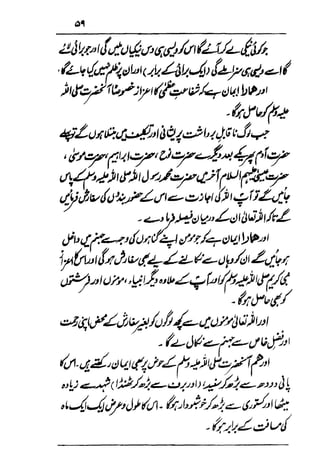 ۵۹
جو کوئی نیکی لے کر آئے گا اس کو ویسی ہی دس نیکیاں ملیں گی اور جو برائی لائے
گا اسے ویسی ہی سزا ملے گی (ایک برائی کے برابر) اور ان پر ظلم نہیں کیا جائے گا۔
اور ہمارا ایمان ہے کہ شفاعتِ عظمیٰ کا اعزاز خصوصاً آنحضرت صلی اللہ
علیہ وسلم کو حاصل ہوگا۔
جب لوگ ناقابل برداشت پریشانی اور تکلیف میں مبتلا ہوں گے تو پہلے
حضرت آدم پھر یکے بعد دیگرے حضرت نوح، حضرت ابراہیم، حضرت موسیٰ،
حضرت عیسیٰ علیہم السلام آخر میں حضرت محمد رسول اللہ صلی اللہ علیہ وسلم کے پاس
جائیں گے تو آپ اللہ کی اجازت سے اس کے حضور بندوں کی سفارش فرمائیں
گے تاکہ اللہ تعالیٰ ان کے درمیان فیصلہ فرما دے۔
اور ہمارا ایمان ہے کہ جو مومن اپنے گناہوں کی وجہ سے جہنم میں داخل
ہو جائیں گے ان کو وہاں سے نکالنے کے لیے بھی سفارش ہوگی اور اس کا اعزاز
نبی کریم صلی اللہ علیہ وسلم کو اور آپ کے علاوہ دیگر انبیاء، مومنوں اور فرشتوں
کو بھی حاصل ہوگا۔
اور اللہ تعالیٰ مومنوں میں سے کچھ لوگوں کو بغیر سفارش کے محض اپنی رحمت
اور فضل خاص سے جہنم سے نکالے گا۔
اور ہم آنحضرت صلی اللہ علیہ وسلم کے حوض پر بھی ایمان رکھتے ہیں۔ اس کا
پانی دودھ سے بڑھ کر سفید (اور برف سے بڑھ کر ٹھنڈا) شہد سے زیادہ
میٹھا اور کستوری سے بڑھ کر خوشبودار ہوگا۔ اس کا طول و عرض ایک ایک ماہ
کی مسافت کے برابر ہوگا۔